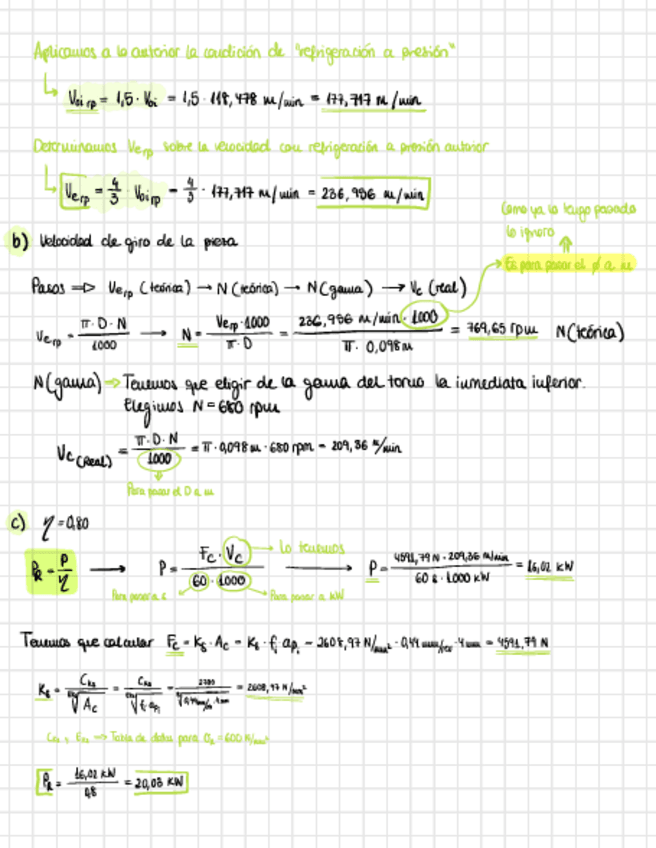 Aplicamos a lo anterior la condición de "refrigeración a presión"
Voi rp = 1,5 · Voi = 1,5 · 118,478 m/min = 177,717 m/min
Determinamos Verp sobre la velocidad con refrigeración a presión anterior
Verp = 4/3 · Voirp = 4/3 · 177,717 m/min = 236,956 m/min
Como ya lo tengo pasado
lo ignoro
b) Velocidad de giro de la pieza
Es para pasar el ø a m
Pasos ⇒ Verp (teórica) → N (teórica) → N (gama) → Vc (real)
Verp = π · D · N / 1000 → N = Verp · 1000 / π · D = 236,956 m/min · 1000 / π · 0,098 m = 769,65 rpm N (teórica)
N (gama) ⇒ Tenemos que eligir de la gama del torno la inmediata inferior.
Elegimos N = 680 rpm
Vc (Real) = π · D · N / 1000 = π · 0,098 m · 680 rpm = 209,36 m/min
Para pasar el D a m
c) η = 0,80
PR = P / η → P = Fc · Vc / 60 · 1000 → Lo tenemos → P = 4591,79 N · 209,36 m/min / 60 s · 1000 kW = 16,02 kW
Para pasar a s Para pasar a kW
Tenemos que calcular Fc = Ks · Ac = Ks · f · ap = 2608,97 N/mm² · 0,44 mm/rev · 4 mm = 4591,79 N
Ks = / Ac = / f · ap = = 2608,97 N/mm²
⇒ Tabla de datos para = 600 N/mm²
PR = 16,02 kW / 0,8 = 20,03 kW